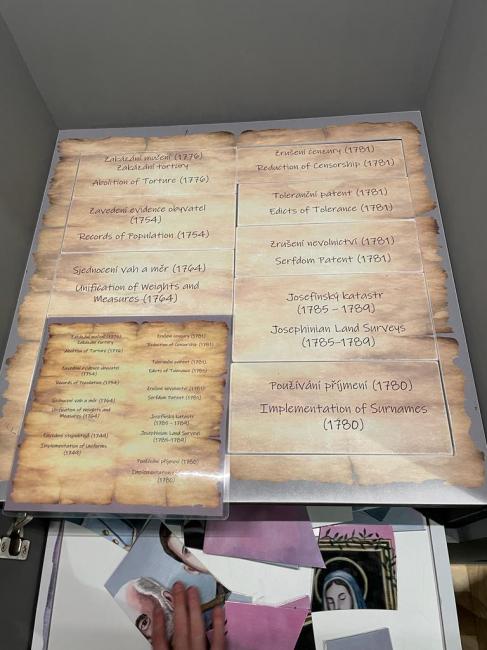 Zakázání mučení (1776)
Zakázání tortury
Abolition of Torture (1776)
Zavedení evidence obyvatel
(1754)
Records of Population (1754)
Sjednocení vah a měr (1764)
Unification of Weights and
Measures (1764)
Zrušení cenzury (1781)
Reduction of Censorship (1781)
Toleranční patent (1781)
Edicts of Tolerance (1781)
Zrušení nevolnictví (1781)
Serfdom Patent (1781)
Josefínský katastr
(1785 – 1789)
Josephinian Land Surveys
(1785-1789)
Používání příjmení (1780)
Implementation of Surnames
(1780)
Zakázání mučení (1776)
Zakázání tortury
Abolition of Torture (1776)
Zavedení evidence obyvatel
(1754)
Records of Population (1754)
Sjednocení vah a měr (1764)
Unification of Weights and
Measures (1764)
Zavedení stejnokrojů
Implementation of Uniforms
Zrušení cenzury (1781)
Reduction of Censorship (1781)
Toleranční patent (1781)
Edicts of Tolerance (1781)
Zrušení nevolnictví (1781)
Serfdom Patent (1781)
Josefínský katastr
(1785 – 1789)
Josephinian Land Surveys
(1785-1789)
Používání příjmení (1780)
(1780)